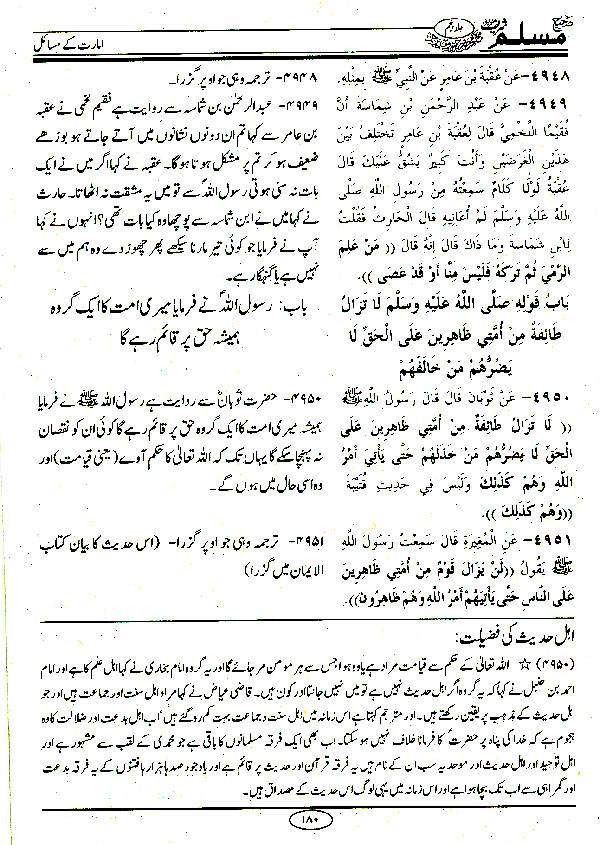 صحیح مسلم شریف
جلد پنجم
امارت کے مسائل
٤٩٤٨- عَنْ عُقْبَةَ بْنِ عَامِرٍ عَنِ النَّبِيِّ ﷺ بِمِثْلِهِ.
٤٩٤٩- عَنْ عَبْدِ الرَّحْمَنِ بْنِ شِمَاسَةَ أَنَّ
فُقَيْمًا اللَّخْمِيَّ قَالَ لِعُقْبَةَ بْنِ عَامِرٍ تَخْتَلِفُ بَيْنَ
هَذَيْنِ الْغَرَضَيْنِ وَأَنْتَ كَبِيرٌ يَشُقُّ عَلَيْكَ قَالَ
عُقْبَةُ لَوْلَا كَلَامٌ سَمِعْتُهُ مِنْ رَسُولِ اللهِ صَلَّى
اللَّهُ عَلَيْهِ وَسَلَّمَ لَمْ أُعَانِيهِ قَالَ الْحَارِثُ فَقُلْتُ
لِابْنِ شِمَاسَةَ وَمَا ذَاكَ قَالَ إِنَّهُ قَالَ (( مَنْ عَلِمَ
الرَّمْيَ ثُمَّ تَرَكَهُ فَلَيْسَ مِنَّا أَوْ قَدْ عَصَى )).
بَابُ قَوْلِهِ صَلَّى اللَّهُ عَلَيْهِ وَسَلَّمَ لَا تَزَالُ
طَائِفَةٌ مِنْ أُمَّتِي ظَاهِرِينَ عَلَى الْحَقِّ لَا
يَضُرُّهُمْ مَنْ خَالَفَهُمْ
٤٩٥٠- عَنْ ثَوْبَانَ قَالَ قَالَ رَسُولُ اللهِ ﷺ
(( لَا تَزَالُ طَائِفَةٌ مِنْ أُمَّتِي ظَاهِرِينَ عَلَى
الْحَقِّ لَا يَضُرُّهُمْ مَنْ خَذَلَهُمْ حَتَّى يَأْتِيَ أَمْرُ
اللَّهِ وَهُمْ كَذَلِكَ وَلَيْسَ فِي حَدِيثِ قُتَيْبَةَ
((وَهُمْ كَذَلِكَ )).
٤٩٥١- عَنِ الْمُغِيرَةِ قَالَ سَمِعْتُ رَسُولَ اللهِ
ﷺ يَقُولُ ((لَنْ يَزَالَ قَوْمٌ مِنْ أُمَّتِي ظَاهِرِينَ
عَلَى النَّاسِ حَتَّى يَأْتِيَهُمْ أَمْرُ اللَّهِ وَهُمْ ظَاهِرُونَ)).
۴۹۴۸- ترجمہ وہی جو اوپر گزرا۔
۴۹۴۹- عبدالرحمٰن بن شماسہ سے روایت ہے فقیم لخمی نے عقبہ
بن عامر سے کہا تم ان دونوں نشانوں میں آتے جاتے ہو بوڑھے
ضعیف ہو کر تم پر مشکل ہوتا ہوگا۔ عقبہ نے کہا اگر میں نے ایک
بات نہ سنی ہوتی رسول اللہ سے تو میں یہ مشقت نہ اٹھاتا۔ حارث
نے کہا میں نے ابن شماسہ سے پوچھا وہ کیا بات تھی؟ انہوں نے کہا
آپ نے فرمایا جو کوئی تیر مارنا سیکھے پھر چھوڑ دے وہ ہم میں سے
نہیں ہے یا گنہگار ہے۔
باب: رسول اللہ نے فرمایا میری امت کا ایک گروہ
ہمیشہ حق پر قائم رہے گا
۴۹۵۰- حضرت ثوبانؓ سے روایت ہے رسول اللہ ﷺ نے فرمایا
ہمیشہ میری امت کا ایک گروہ حق پر قائم رہے گا کوئی ان کو نقصان
نہ پہنچا سکے گا یہاں تک کہ اللہ تعالیٰ کا حکم آوے (یعنی قیامت) اور
وہ اسی حال میں ہوں گے۔
۴۹۵۱- ترجمہ وہی جو اوپر گزرا۔ (اس حدیث کا بیان کتاب
الایمان میں گزرا)
اہل حدیث کی فضیلت:
(۴۹۵۰) ☆ اللہ تعالیٰ کے حکم سے قیامت مراد ہے یا وہ ہوا جس سے ہر مومن مر جائے گا اور یہ گروہ امام بخاری نے کہا اہل علم کا ہے اور امام
احمد بن حنبل نے کہا کہ یہ گروہ اگر اہل حدیث نہیں ہے تو میں نہیں جانتا اور کون ہیں۔ قاضی عیاض نے کہا مراد اہل سنت اور جماعت ہیں اور جو
اہل حدیث کے مذہب پر یقین رکھتے ہیں۔ اور مترجم کہتا ہے اس زمانہ میں اہل سنت و جماعت بہت کم رہ گئے ہیں' اب اہل بدعت اور ضلالت کا وہ
ہجوم ہے کہ خدا کی پناہ پر حضرت ؐ کا فرمانا خلاف نہیں ہو سکتا۔ اب بھی ایک فرقہ مسلمانوں کا باقی ہے جو محمدی کے لقب سے مشہور ہے اور
اہل توحید اور اہل حدیث اور موحد یہ سب ان کے نام ہیں یہ فرقہ قرآن اور حدیث پر قائم ہے اور باوجود صدہا ہزار ہا فتنوں کے یہ فرقہ بدعت
اور گمراہی سے اب تک بچا ہوا ہے اور اس زمانہ میں یہی لوگ اس حدیث کے مصداق ہیں۔
۱۸۰